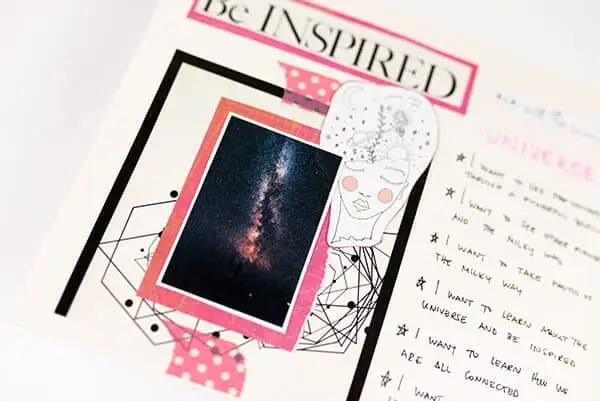 Be INSPIRED
UNIVERSE
☆ I WANT TO SEE THE UNIVERSE
THROUGH A POWERFUL
☆ I WANT TO SEE OTHER
AND THE MILKY WAY
☆ I WANT TO TAKE PHOTOS OF
THE MILKY WAY
☆ I WANT TO LEARN ABOUT THE
UNIVERSE AND BE INSPIRED
☆ I WANT TO LEARN HOW WE
ARE ALL CONNECTED
☆ I WANT